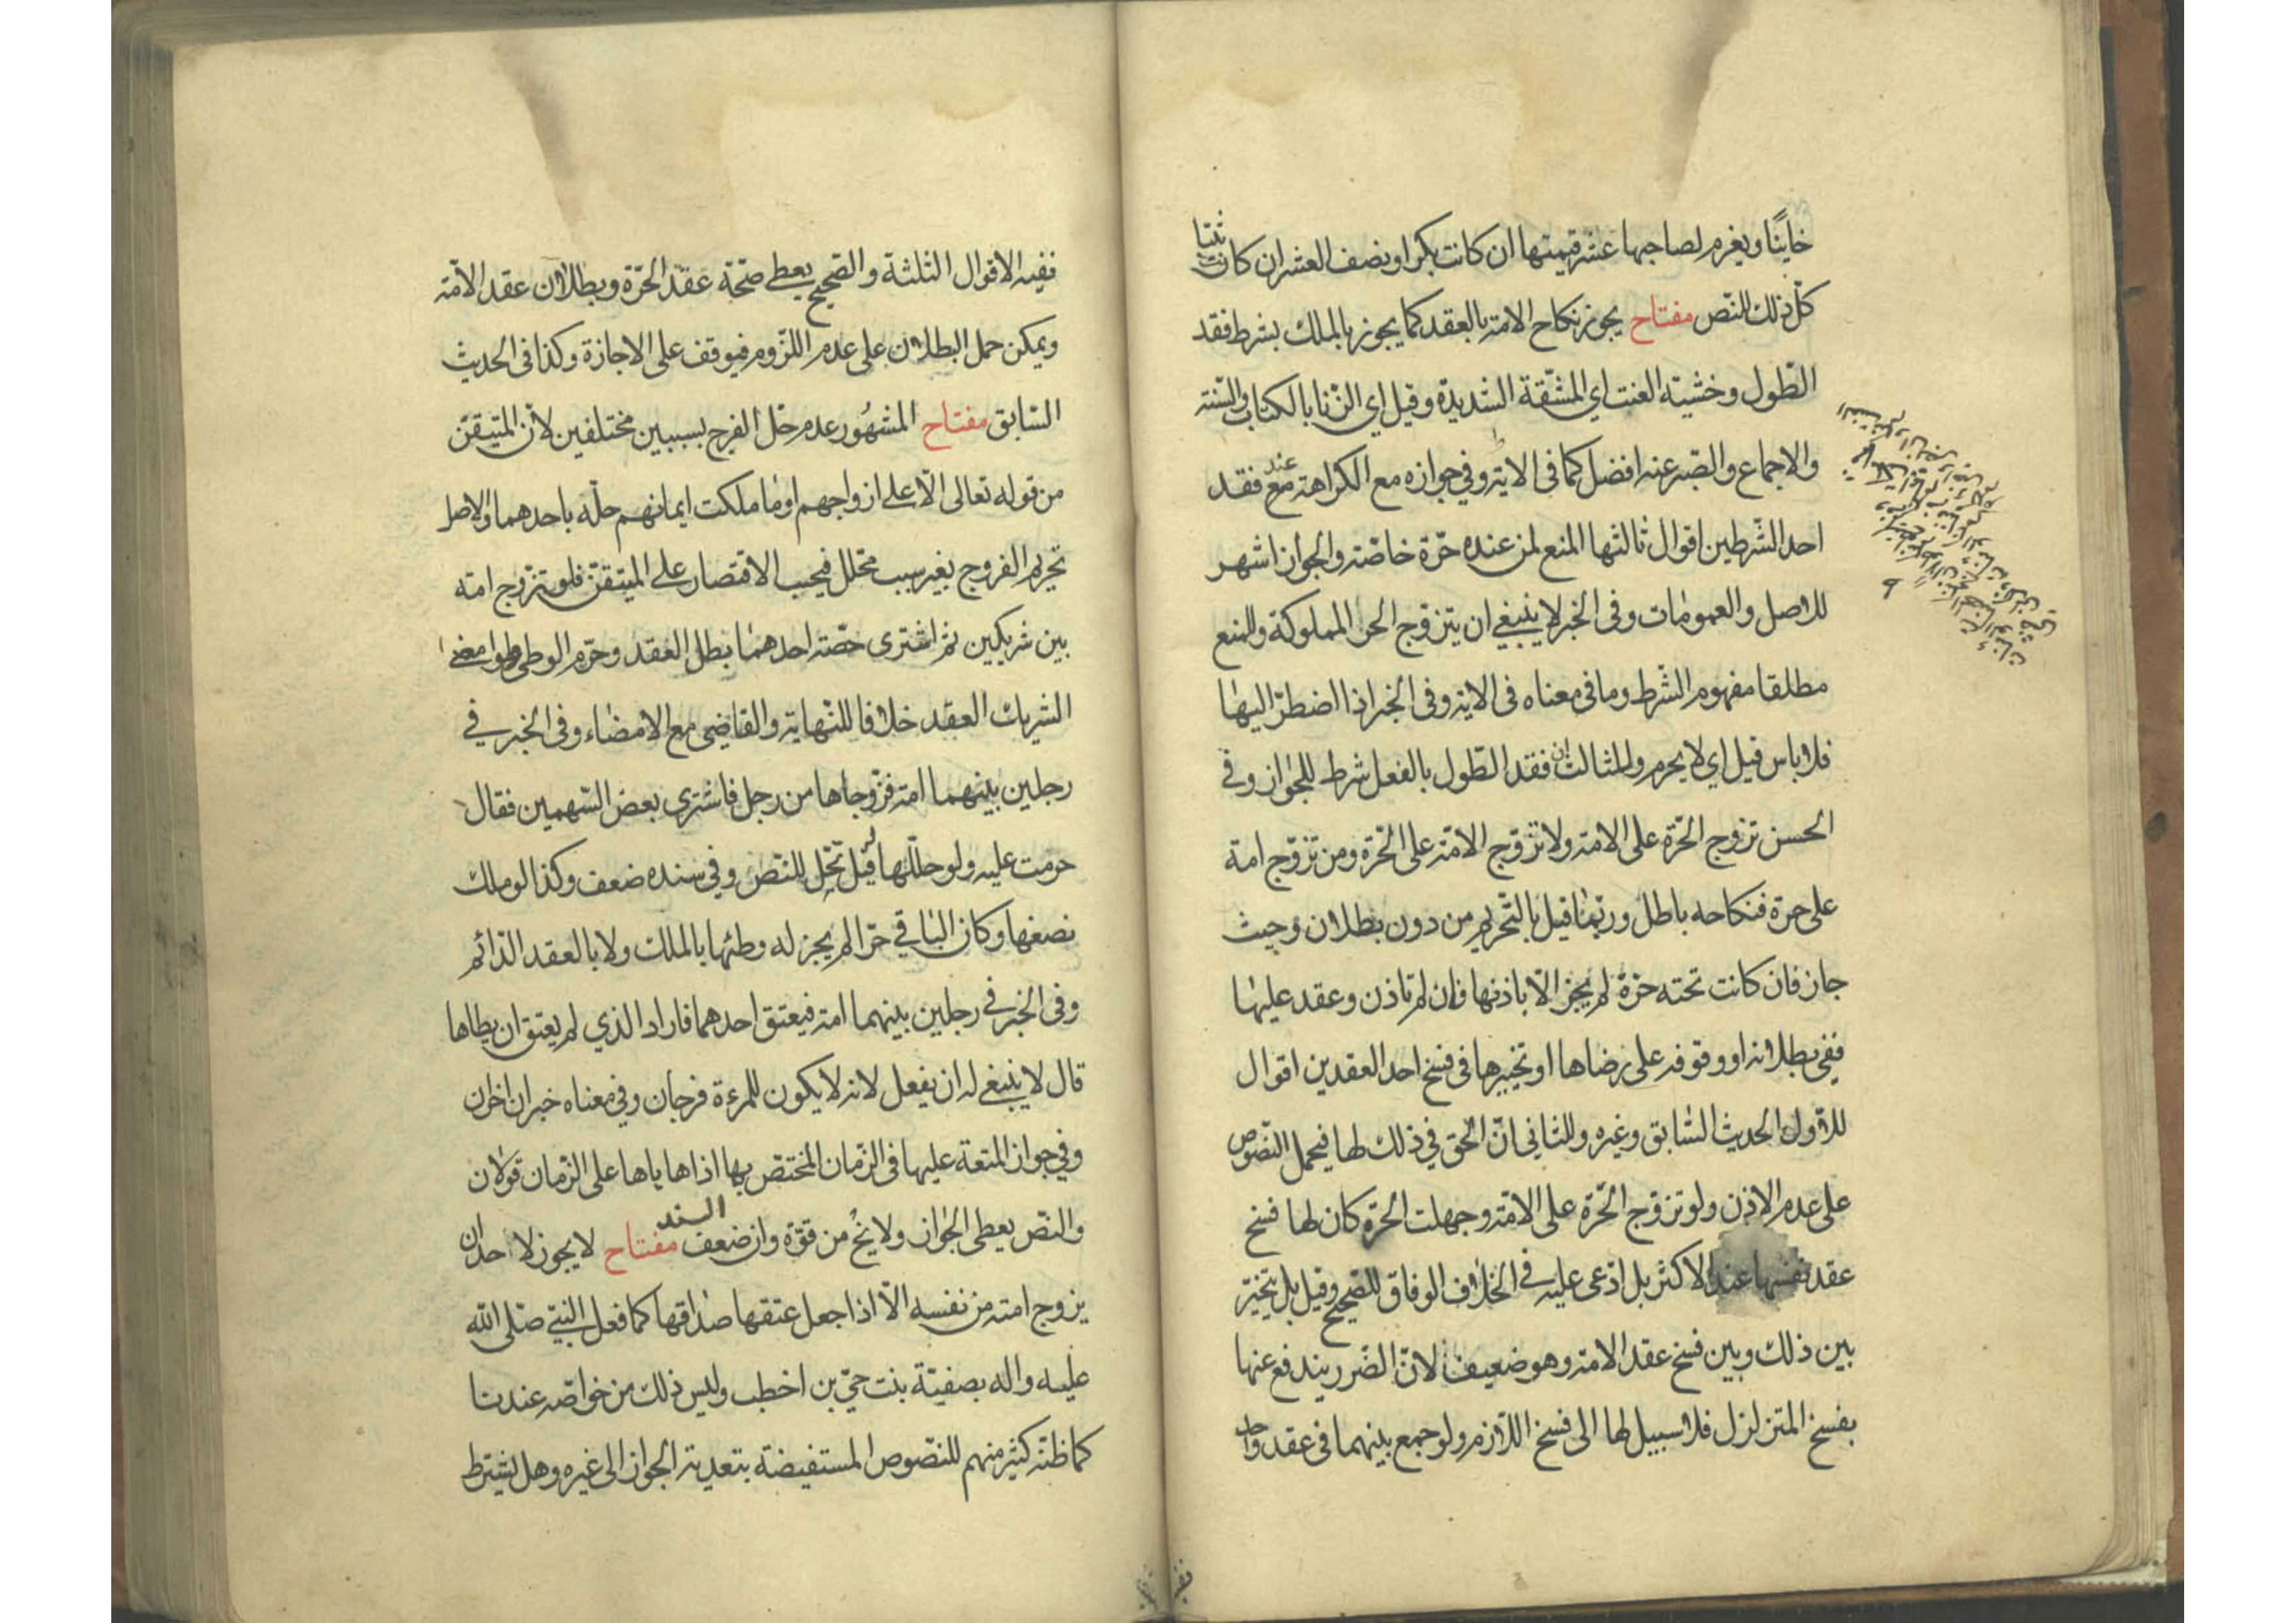 خاينًا ويغرم لصاحبها عشر قيمتها ان كانت بكرا ونصف العشر ان كانت ثيبا
كلّ ذلك للنّص مفتاح يجوز نكاح الامة بالعقد كما يجوز بالملك بشرط فقد
الطّول وخشية العنت اي المشّقة الشديدة وقيل اي الزّنا بالكتاب والسّنة
والاجماع والصّبر عنه افضل كما فى الاية وفي جوازه مع الكراهة مع عند فقد
احد الشّرطين اقوال ثالثها المنع لمن عنده حرّة خاصّة والجواز اشهر
للاصل والعمومات وفى الخبر لا ينبغي ان يتزوّج الحر المملوكة وللمنع
مطلقا مفهوم الشّرط وما فى معناه فى الاية وفى الخبر اذا اضطرّ اليها
فلا باس قيل اي لا يحرم وللثالث ان فقد الطّول بالفعل شرط للجواز وفي
الحسن تزوج الحّرة على الامة ولا تزوّج الامّة على الحّرة ومن تزوّج امة
على حرة فنكاحه باطل وربّما قيل بالتّحريم من دون بطلان وحيث
جاز فان كانت تحته حرّة لم يجز الّا باذنها فان لم تاذن وعقد عليها
ففي بطلانه او وقوفه على رضاها او تخييرها فى فسخ احد العقدين اقوال
للاّول الحديث السّابق وغيره وللثاني انّ الحّق في ذلك لها فيحمل النّصوص
على عدم الاذن ولو تزوّج الحّرة على الامّة وجهلت الحرّة كان لها فسخ
عقد نفسها عند الاكثر بل ادّعى عليه في الخلاف الوفاق للصّحيح وقيل بل يتخيّر
بين ذلك وبين فسخ عقد الامة وهو ضعيف لانّ الضّرر يندفع عنها
بفسخ المتزلزل فلا سبيل لها الى فسخ اللاّزم ولو جمع بينهما فى عقد واحد
ففيه الاقوال الثلثة والصّحيح يعطي صحّة عقد الحّرة وبطلان عقد الامّة
ويمكن حمل البطلان على عدم اللّزوم فيوقف على الاجازة وكذا فى الحديث
السّابق مفتاح المشهُور عدم حّل الفرج بسببين مختلفين لانّ المتيقّن
من قوله تعالى الّا على ازواجهم او ما ملكت ايمانهم حلّه باحدهما والاصل
تحريم الفروج بغير سبب محّلل فيجب الاقتصار على المتيقّن فلو تزّوج امة
بين شريكين ثم اشترى حصّة احدهما بطل العقد وحّرم الوطي ولو امضى
الشريك العقد خلافا للنّهاية والقاضي مع الامضاء وفى الخبر في
رجلين بينهما امة فزّوجاها من رجل فاشترى بعض السّهمين فقال
حرمت عليه ولو حلّلها قيل تحّل للنّص وفي سنده ضعف وكذا لو ملك
نصفها وكان الباقي حّرا لم يجز له وطئها بالملك ولا بالعقد الدّائم
وفى الخبر في رجلين بينهما امة فيعتق احدهما فاراد الذي لم يعتق ان يطاها
قال لا ينبغي له ان يفعل لانه لا يكون للمرءة فرجان وفي معناه خبران اخران
وفي جواز المتعة عليها فى الزّمان المختّص بها اذا هاياها على الزّمان قولان
والنّص يعطي الجواز ولا يخ من قوّة وان ضعف السند مفتاح لا يجوز لاحد ان
يزوج امته من نفسه الاّ اذا جعل عتقها صداقها كما فعل النبّي صلّى اللّه
عليه واله بصفيّة بنت حيّ بن اخطب وليس ذلك من خواصّه عندنا
كما ظنّه كثير منهم للنّصوص المستفيضة بتعدية الجواز الى غيره وهل يشترط